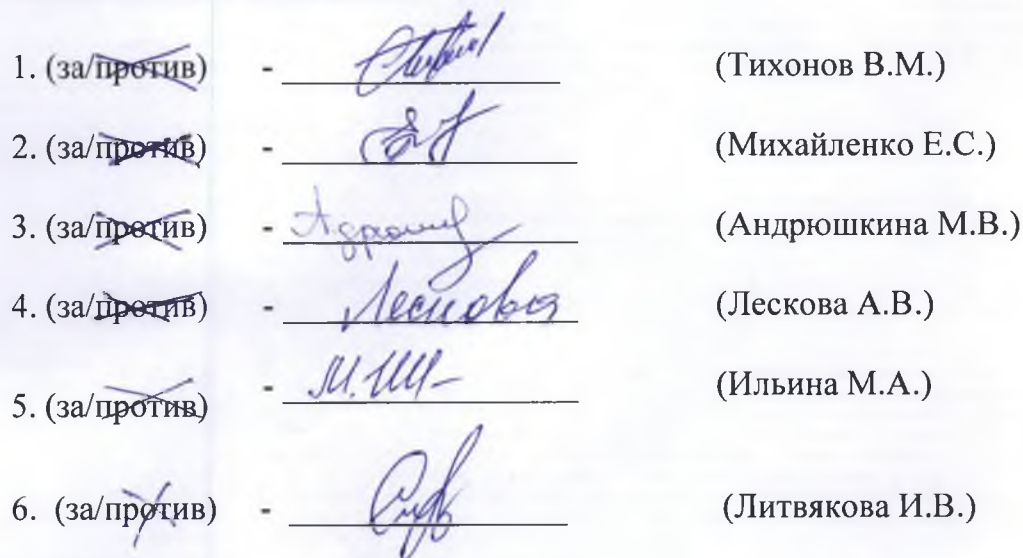 1. (за/против) - (Тихонов В.М.)
2. (за/против) - (Михайленко Е.С.)
3. (за/против) - (Андрюшкина М.В.)
4. (за/против) - Лескова (Лескова А.В.)
5. (за/против) - (Ильина М.А.)
6. (за/против) - (Литвякова И.В.)